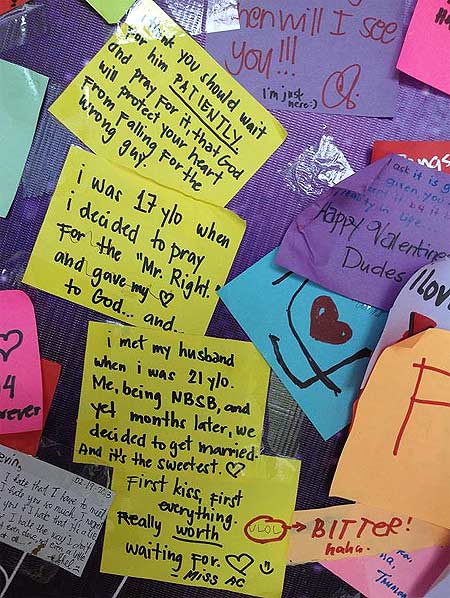 when will I see
you!!!
I'm just
here:)
think you should wait
for him PATIENTLY.
and pray for it, that God
will protect your heart
from falling for the
wrong guy.
ack it is g
given you
Happy Valentine
Dudes
i was 17 y/o when
i decided to pray
for the "Mr. Right."
and gave my ♡
to God... and...
I Lov
4
orever
i met my husband
when i was 21 y/o.
Me, being NBSB, and
yet months later, we
decided to get married.
And it's the sweetest. ♡
F
evin,
02-19-2013
I hate that I have to
I hate you so much,
First kiss, first
everything.
Really worth
waiting for. ♡
- Miss AC
LOL
BITTER!
haha.
Ha,
Ha,